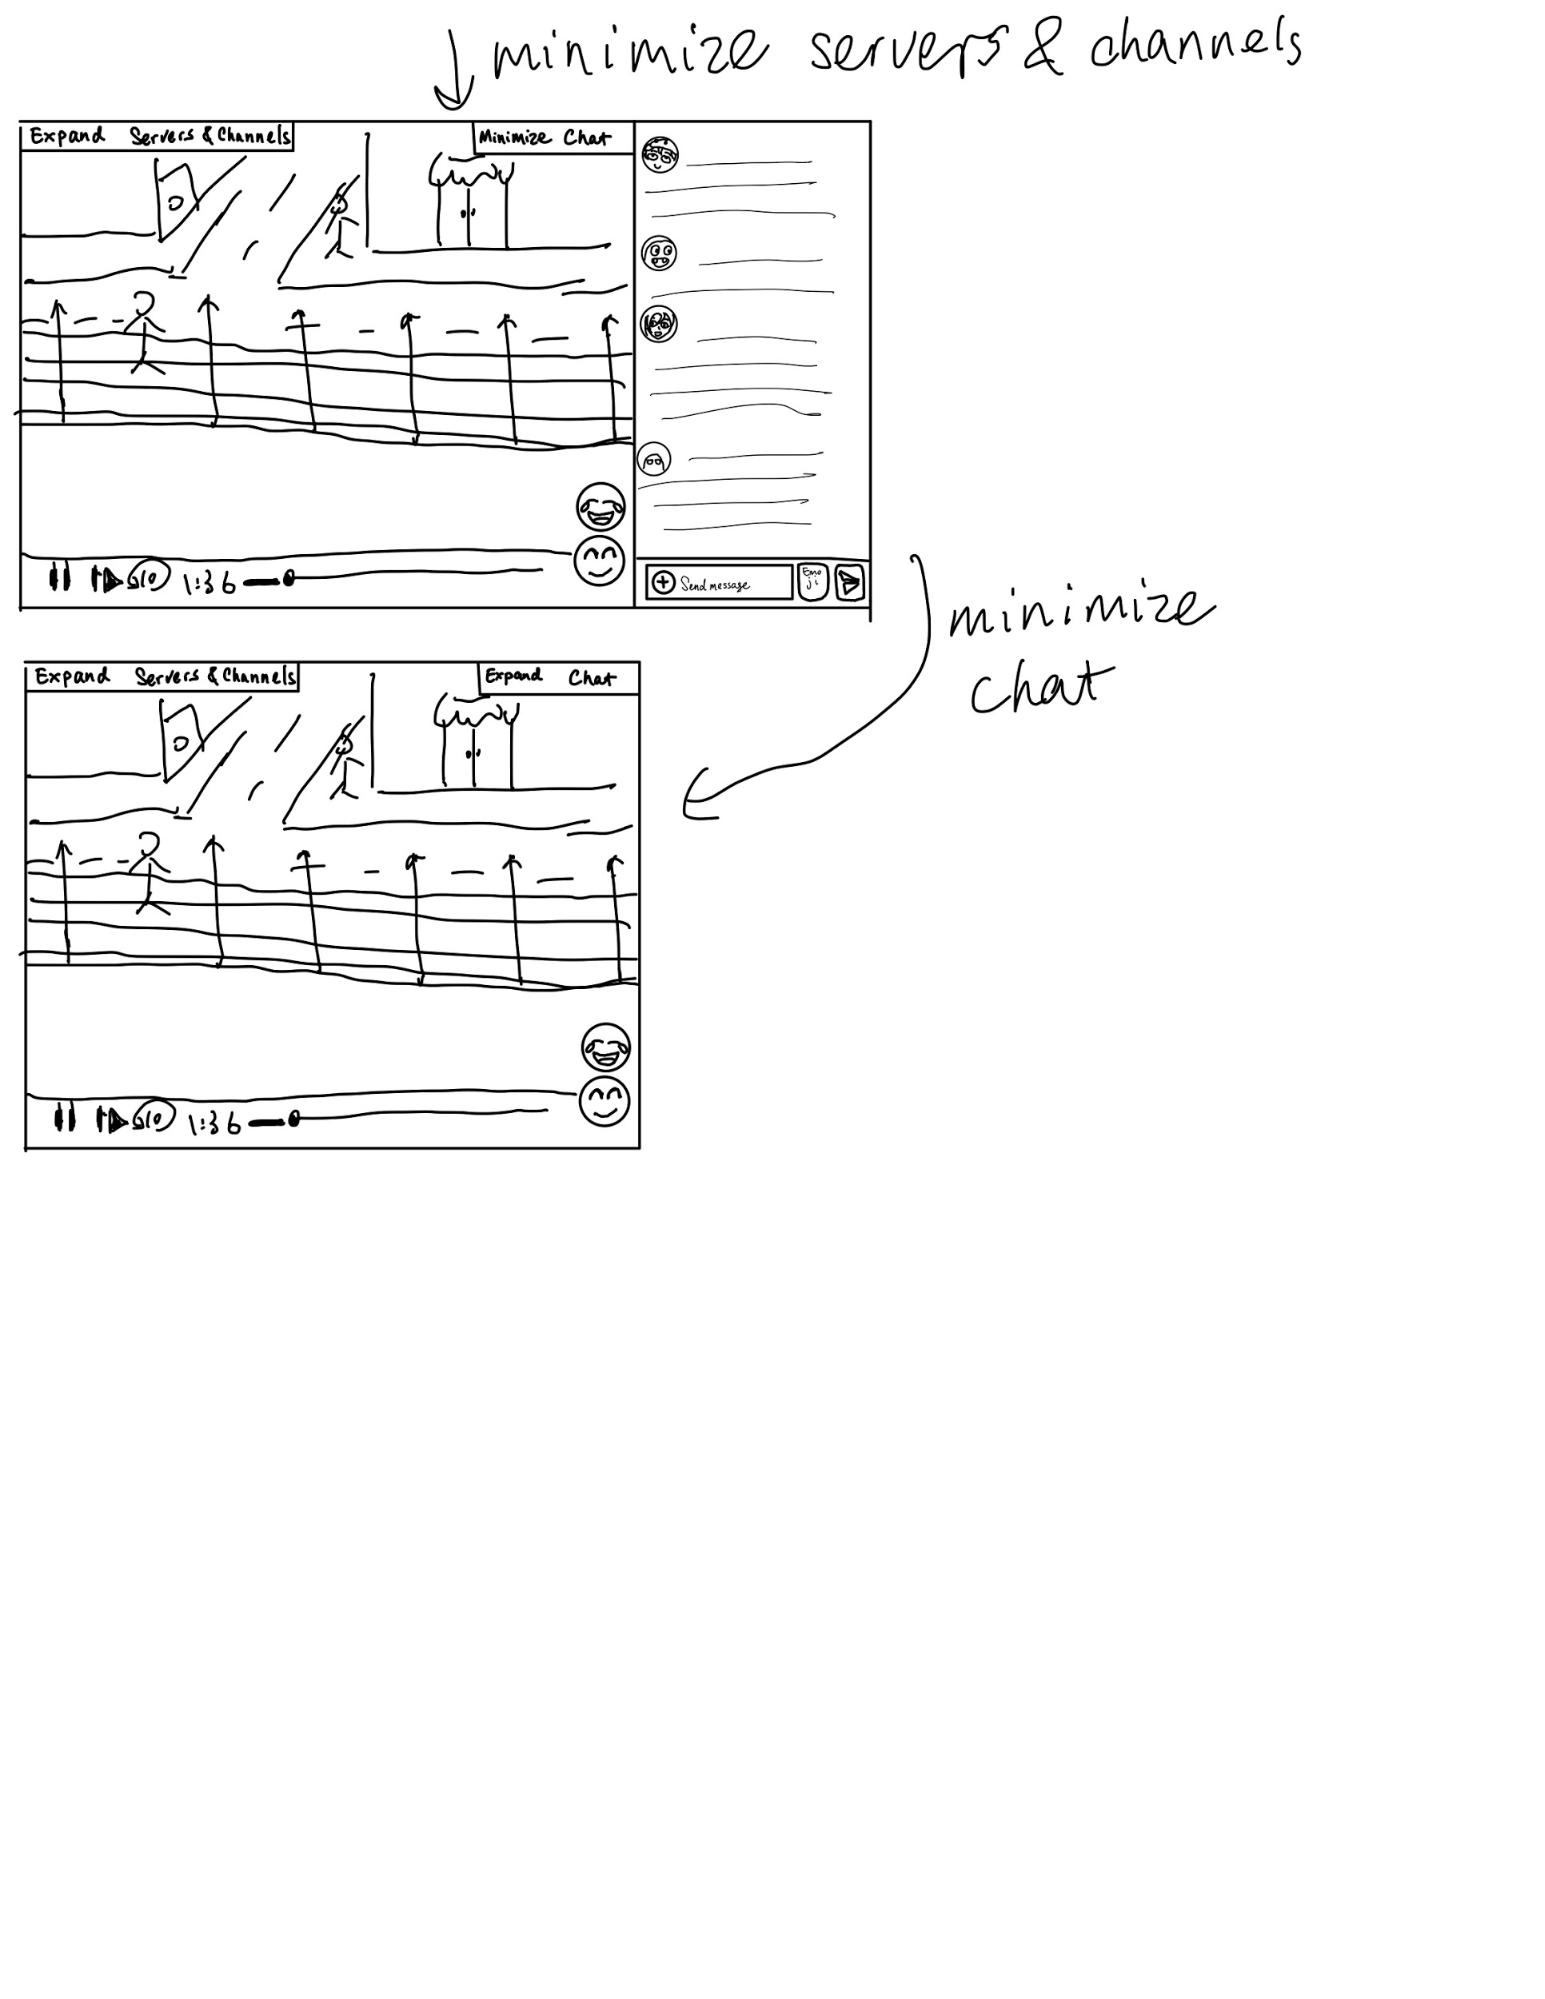 minimize servers & channels
Expand Servers & Channels
Minimize Chat
1:36
Send message
Emo
ji
minimize
chat
Expand Servers & Channels
Expand Chat
1:36